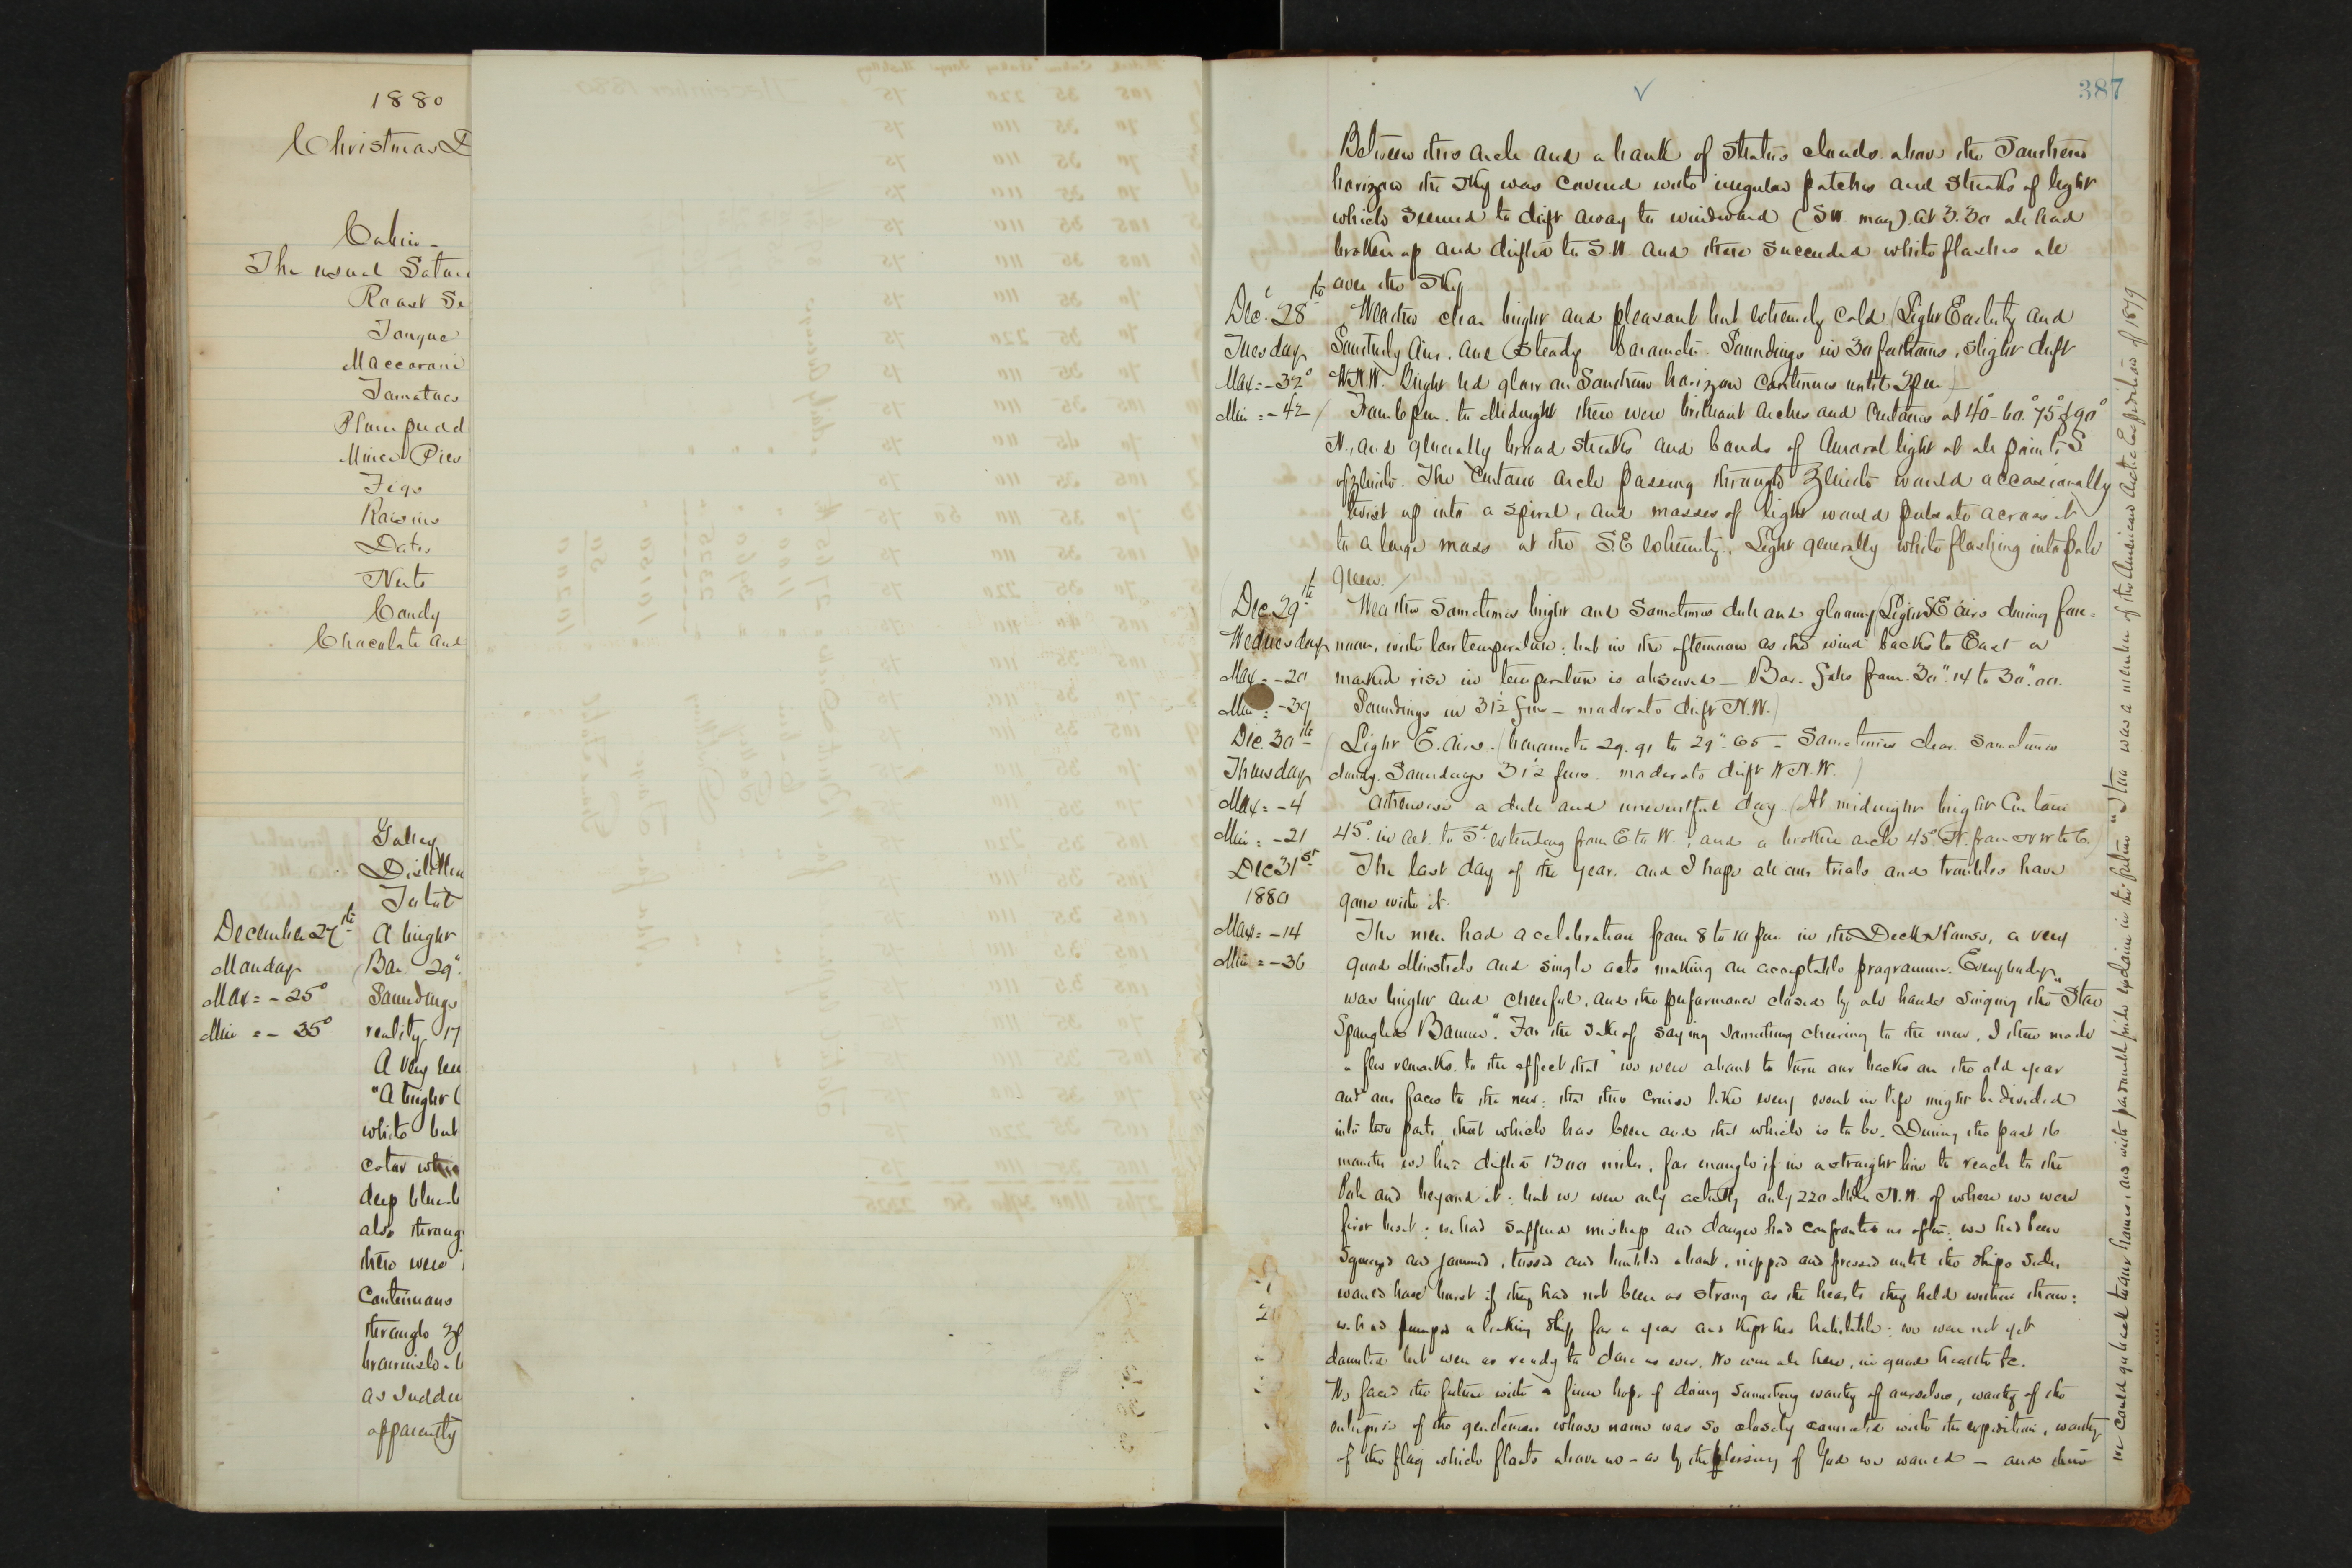 1880
Christmas D
Cabin -
The usual Satur
Roast Se
Tongue
Maccaroni
Tomatoes
Plum pudd
Mince Pies
Figs
Raisins
Dates
Nuts
Candy
Chocolate and
Galley
December 27th A bright
Monday (Bar 29".
Max = - 25° Soundings
Min = - 35° reality 17
A very
"A bright
white but
color
deep
also throug
there were
Continuous
through
as sudden
apparently
387
Between this arch and a bank of stratus clouds above the Southern
horizon the sky was covered with irregular patches and streaks of light
which seemed to drift away to windward (SW. mag). At 3.30 all had
broken up and drifted to S.W. and there succeeded white flashes all
over the sky
Dec. 28th Weather clear bright and pleasant but extremely cold. (Light Easterly and
Tuesday Southerly Airs. and steady barometer. Soundings in 30 fathoms, slight drift
Max = -32° WNW. Bright red glow on Southern horizon continues until 2 pm)
Min = -42 From 6 pm. to Midnight there were brilliant arches and Curtains at 40°-60.°75°&90°
N., and generally broad streaks and bands of Auroral light at all points S
of zenith. The Curtain arch passing through Zenith would occasionally
twist up into a spiral, and masses of light would pulsate across it
to a large mass at the S.E extremity. Light generally white flashing into pale
green.
Dec 29th Weather sometimes bright and sometimes dull and gloomy (Light SE airs during fore=
Wednesday noon, with low temperature: but in the afternoon as the wind backs to East a
Max = -20 marked rise in temperature is observed - Bar. falls from 30".14 to 30".00.
Min = -39 Soundings in 31½ fms - moderate drift N.W.)
Dec. 30th (Light E. airs. (barometer 29.91 to 29".65 - Sometimes clear sometimes
Thursday cloudy. Soundings 31½ fms. moderate drift WNW.)
Max = -4 Otherwise a dull and uneventful day. (At midnight bright Curtain
Min = -21 45° in alt. to Sd. extending from E to W.; and a broken arch 45° N. from NW to E.
Dec 31st The last day of the year. and I hope all our trials and troubles have
1880 gone with it.
Max = -14 The men had a celebration from 8 to 10 pm in the Deck House, a very
Min = -36 good Minstrels and single acts making an acceptable programme. Everybody
was bright and cheerful, and the performance closed by all hands singing the "Star
Spangled Banner". For the sake of saying something cheering to the men, I then made
a few remarks. to the effect that "we were about to turn our backs on the old year
and our faces to the new: that this cruise like every event in life might be divided
into two parts, that which has been and that which is to be. During the past 16
months we had drifted 1300 miles, far enough if in a straight line to reach to the
Pole and beyond it: but we were only actually only 220 miles N.W. of where we were
first beset: we had suffered mishap and danger had confronted us often: we had been
squeezed and jammed, tossed and tumbled about, nipped and pressed until the ships sides
would have burst if they had not been as strong as the hearts they held within them:
we had pumped a leaking ship for a year and kept her habitable: we were not yet
daunted but were as ready to dare as ever. We were all here, in good health &c.
We faced the future with a firm hope of doing something worthy of ourselves, worthy of the
enterprise of the gentleman whose name was so closely connected with the expedition, worthy
of the flag which floats above us - as by the blessing of God we would - and then
we could go back to our homes, and with pardonable pride exclaim in the future "I too was a member of the American Arctic Expedition of 1879